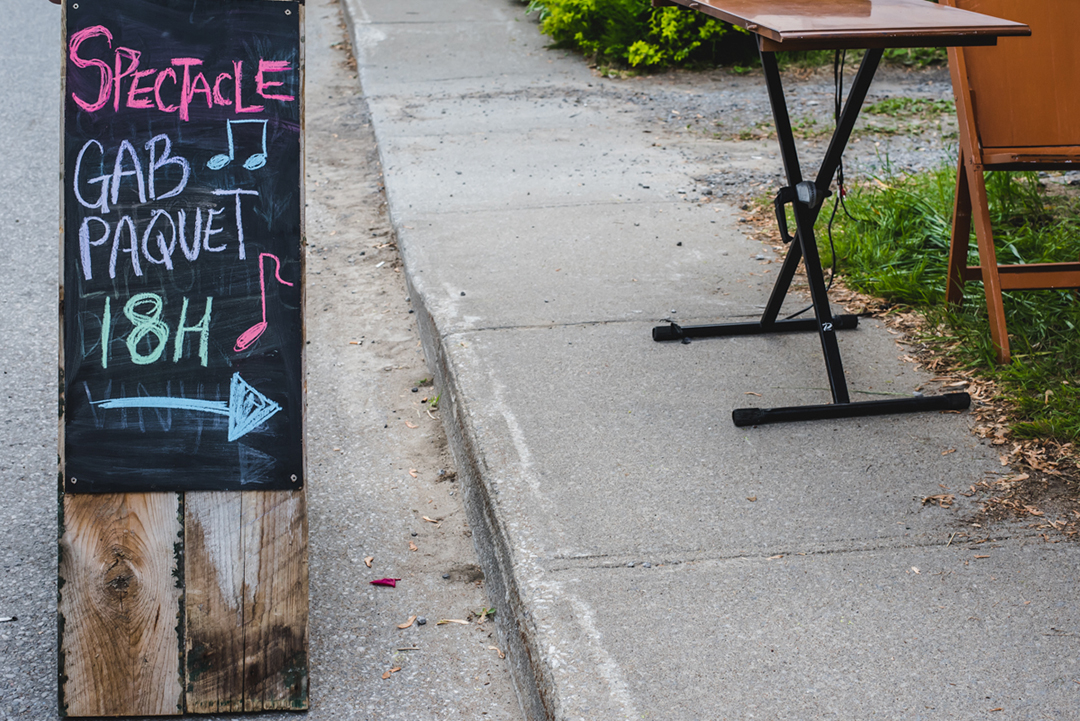 SPECTACLE
GAB
PAQUET
18H